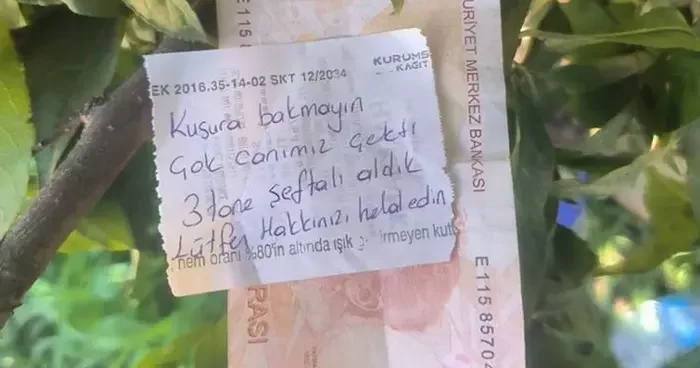 KURUMS
KAĞIT
EK 2016.35-14-02 SKT 12/2034
Kusura bakmayın
Çok canımız çekti
3 tane şeftali aldık
Lütfen Hakkınızı helal edin
nem oranı %80'in altında ışık irmeyen kut
E 115 8
URİYET MERKEZ BANKASI
E 115 8570
RASI